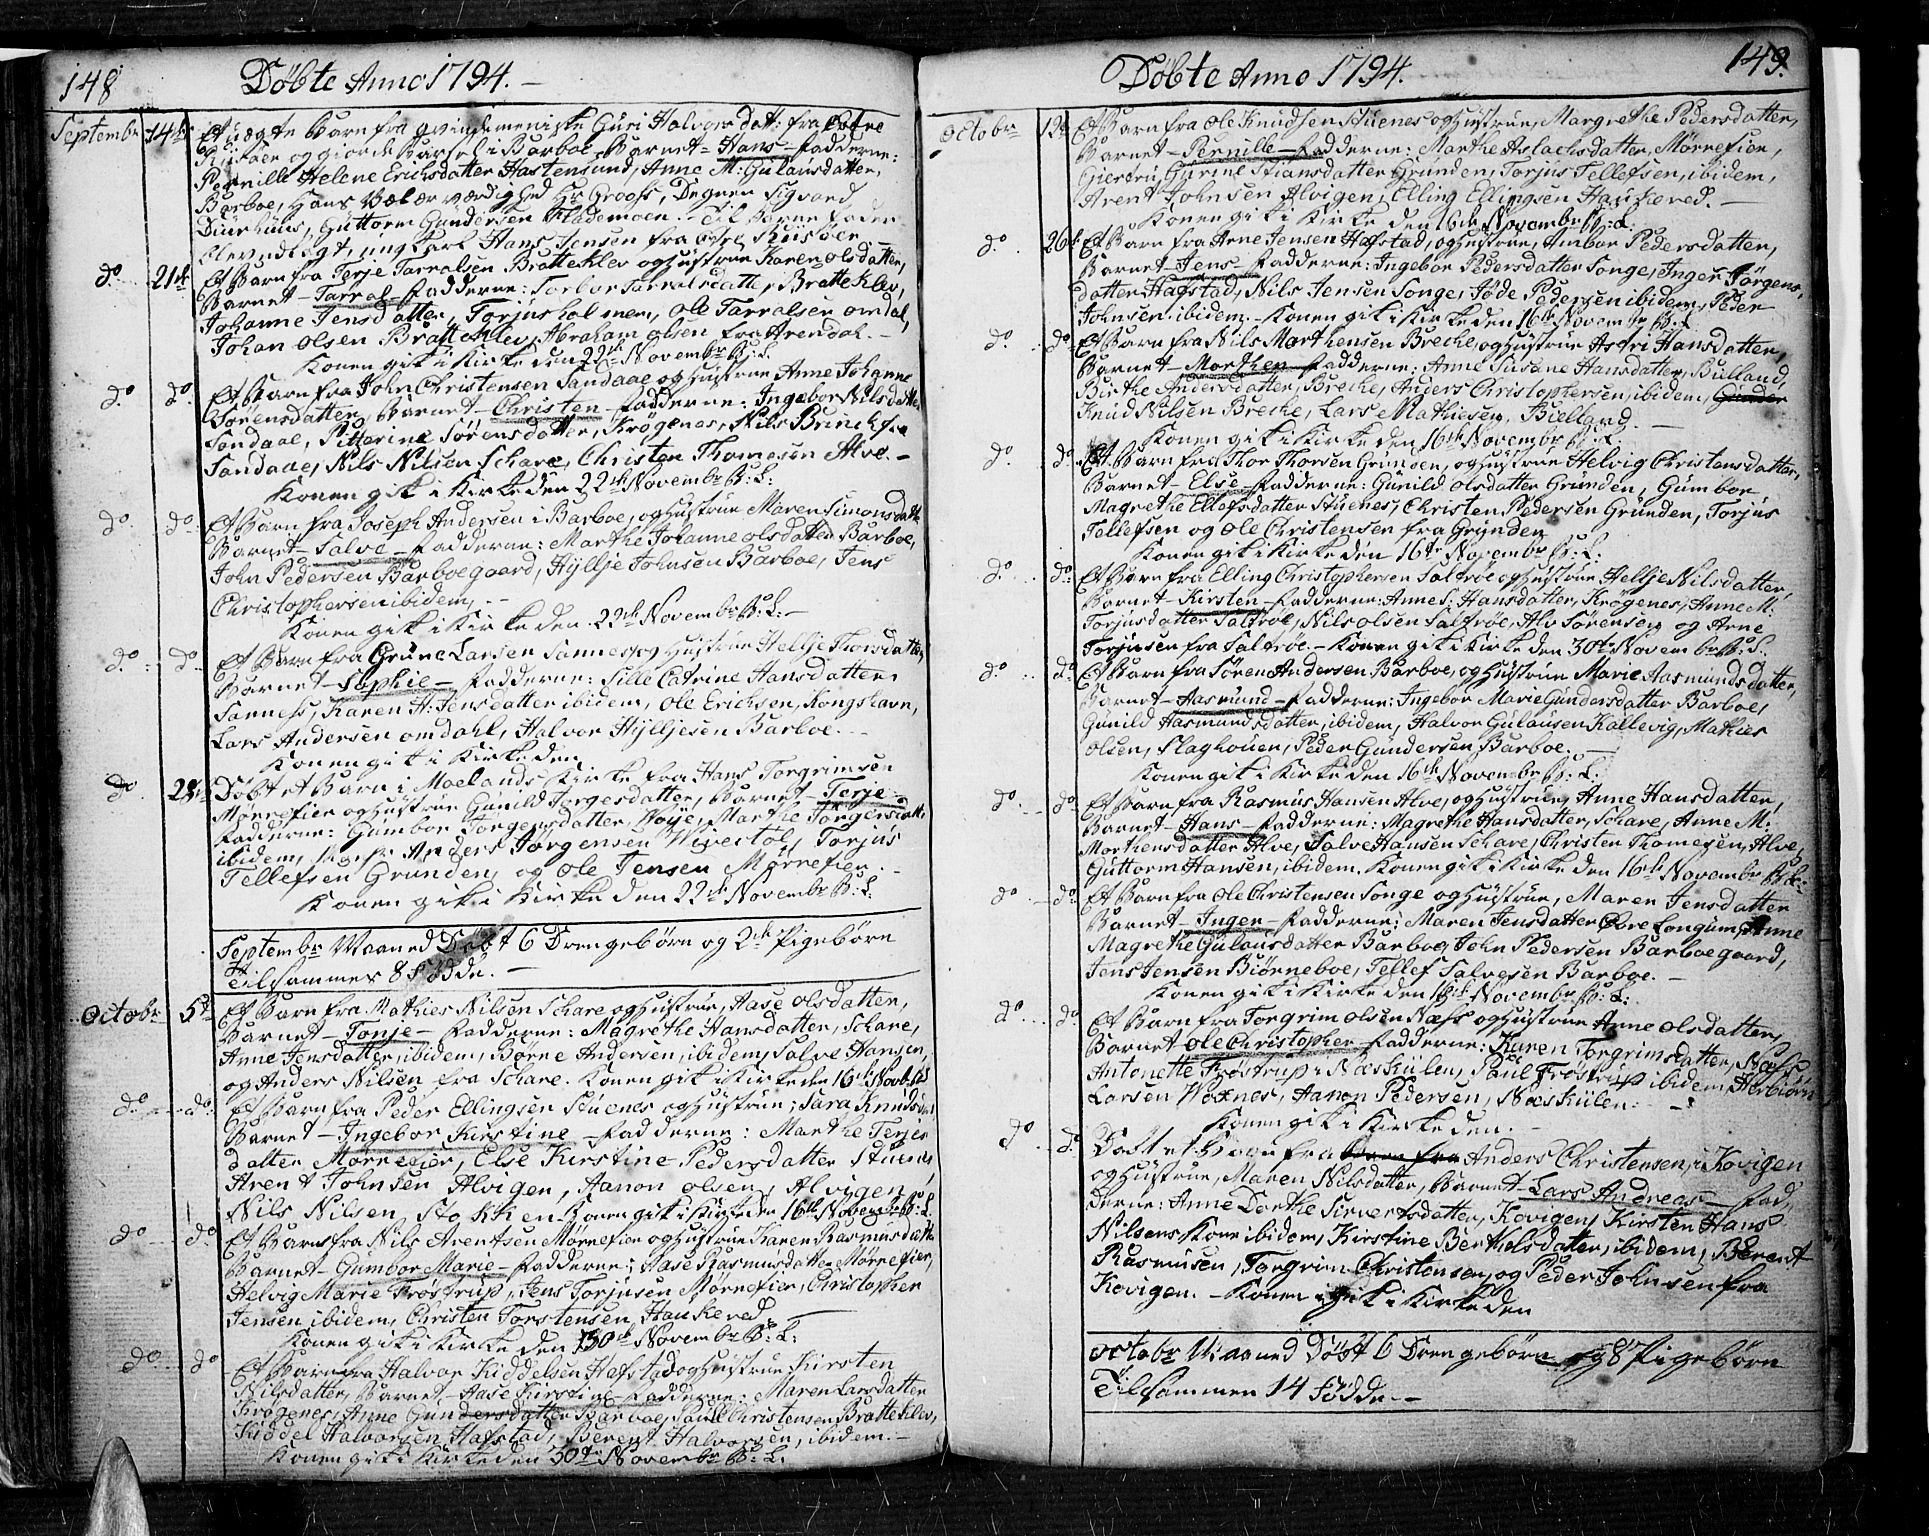 148
Döbte Anno 1794. —
Septembr 14de Et uægte Barn fra qvindemeniske Guri Halvorsdatt: fra Østre
og giorde Barsel i Barboe Barnet — Hans — Fadderne:
Pernille Helene Erichsdatter Hastensund, Anne M: Gulausdatter,
Barboe, Hans Vælærværdighed Hr Grooss, Degnen Sigvard
Diurhuus, Guttorm Gundersen Flademoen. Til Barne Fader
blev udlagt, ung Karl Hans Jensen fra
do. 21de Et Barn fra Terje Tarralsen Bratteklev og Hustrue Karen olsdatter,
Barnet — Tarral — Fadderne: Torbor Tarralsdatter Bratteklev,
Johanne Jensdatter, Torjusholmen, Ole Tarralsen omdal,
Johan olsen Bratteklev, Abraham olsen fra Arendal. —
Konen gik i Kirke den 22de Novembr B: L.
do. do. Et Barn fra John Christensen Sandaae og Hustrue Anne Johanne
Sörensdatter, Barnet — Christen — Fadderne: Ingebor Nilsdatter
Sandaae, Pitterine Sörensdatter, Krögenes, Nils Brinck fra
Sandaae, Nils Nilsen Schare, Christen Thomesen Alve. —
Konen gik i Kirke den 22de Novembr B: L:
do. do. Et Barn fra Joseph Andersen i Barboe, og Hustrue Maren Simonsdatter
Barnet — Salve — Fadderne: Marthe Johanne olsdatter Barboe,
John Pedersen Barboegaard, Hyllje Johnsen Barboe, Jens
Christophersen ibidem, —
Konen gik i Kirke den 22de Novembr B: L: —
do. do. Et Barn fra Grune Larsen Sannes og Hustrue Hellje Thorsdatter,
Barnet — Sophie — Fadderne: Sille Catrine Hansdatter
Sanness, Karen H: Jensdatter ibidem, Ole Erichsen, Kongshavn,
Lars Andersen omdahl, Halvor Hylljesen Barboe. —
Konen gik i Kirke den
do. 28de Döbt et Barn i Moelands Kirke fra Hans Torgrimsen
Mörrefier og Hustrue Gunild Jorgesdatter, Barnet — Terje —
Fadderne: Gumbor Jörgensdatter Woje, Marthe Jörgensdatt:
ibidem, Anders Jörgensen Wivestöl, Torjus
Tellefsen Grunden, og Ole Jensen Mörrefier. —
Konen gik i Kirke den 22de Novembr B: L.
Septembr Maaned Döbt 6 Drengebörn og 2de Pigebörn
Tilsammen 8 Födde. —
Octobr 5te Et Barn fra Mathies Nilsen Schare og Hustrue, Aase Olsdatter,
Barnet — Tonje — Fadderne: Magrethe Hansdatter, Schare,
Anne Jensdatter, ibidem, Börne Andersen, ibidem, Salve Hansen,
og Anders Nilsen fra Schare. Konen gik i Kirke den 16de Novbr
do. do. Et Barn fra Peder Ellingsen Stuenes og Hustrue; Sara Knudsdatt
Barnet — Ingebor Kirstine — Fadderne: Marthe Terjes
datter Mörrefier, Else Kirstine Pedersdatter Stuenes
Arent Johnsen Alvigen, Aanon olsen, Alvigen,
Nils Nilsen, Stokken Konen gik i Kirke den 16de Novembr B: L.
do. do. Et Barn fra Nils Arentsen Mörrefier og Hustrue Karen Rasmusdatt:
Barnet — Gumbor Marie — Fadderne; Aase Rasmusdatter Mörrefier,
Helvig Marie Fröstrup, Jens Torjusen Mörrefier, Christopher
Jensen ibidem, Christen Torstensen, Haukered —
Konen gik i Kirke den 30de Novembr B: L:
do. do Et Barn fra Halvor Kiddelsen Hafstad og Hustrue Kirsten
Nilsdatter, Barnet — Aase Kirstine — Fadderne: Maren Larsdatter
Krögenes, Anne Gundersdatter Barboe, Paul Christensen Bratteklev,
Kiddel Halvorsen Hafstad, Berent Halvorsen, ibidem. —
Konen gik i Kirke den 30te Novembr B: L.
149.
Döbte Anno 1794.
Octobr 12te Et Barn fra Ole Knudsen Stuenes og Hustrue, Margrethe Pedersdatter,
Barnet — Pernille — Fadderne: Marthe Aslachsdatter, Mörrefier,
Giertru Gurine Stiansdatter Grunden, Torjus Tellefsen, ibidem,
Arent Johnsen Alvigen, Elling Ellingsen Haukered. —
Konen gik i Kirke den 16de Novembr B: L.
do. 26de Et Barn fra Arne Jensen Hafstad, og Hustrue, Ambor Pedersdatter,
Barnet — Jens — Fadderne: Ingebor Pedersdatter Songe, Inger Jörgens,
datter Hafstad, Nils Jensen Songe, Jöde Pedersen ibidem, Peder
Johnsen ibidem. — Konen gik i Kirke den 16de Novembr B: L
do. do. Et Barn fra Nils Morthensen Breche, og Hustrue Astri Hansdatter,
Barnet — Morthen — Fadderne: Anne Susane Hansdatter, Bielland,
Birthe Andersdatter, Breche, Anders Christophersen, ibidem, Gunder
Knud Nilsen Breche, Lars Mathiesen, Bielland. —
Konen gik i Kirke den 16de Novembr B: L.
do. do. Et Barn fra Thor Thorsen Grunden, og Hustrue Helvig Christensdatter,
Barnet — Else — Fadderne: Gunild Olsdatter Grunden, Gumbor
Magrethe Ellefsdatter Stuenes, Christen Pedersen Grunden, Torjus
Tellefsen og Ole Christensen fra Grunden
Konen gik i Kirke den 16de Novembr B: L:
do. do. Et Barn fra Elling Christophersen Saltröe og Hustrue Hellje Nilsdatter,
Barnet — Kirsten — Fadderne: Anne S: Hansdatter, Krögenes, Anne M:
Torjusdatter Saltröe, Nils olsen Saltröe, Alv Sörensen og Arne
Torjusen fra Saltröe. — Konen gik i Kirke den 30te Novembr B: L.
do. do Et Barn fra Sören Andersen Barboe, og Hustrue Marie Aasmundsdatter,
Barnet — Aasmund — Fadderne: Ingebor Marie Gundersdatter Barboe,
Gunild Aasmundsdatter, ibidem, Halvor Gulausen Kallevig, Mathies
Olsen, Flaghouen, Peder Gundersen Barboe. —
Konen gik i Kirke den 16de Novembr B: L:
do. do Et Barn fra Rasmus Hansen Alve, og Hustrue, Anne Hansdatter,
Barnet — Hans — Fadderne: Magrethe Hansdatter, Schare, Anne M:
Morthensdatter Alve, Salve Hansen Schare, Christen Thomesen, Alve,
Guttorm Hansen, ibidem. Konen gik i Kirke den 16de Novembr B: L:
do do Et Barn fra Ole Christensen Songe og Hustrue, Maren Jensdatter
Barnet — Inger — Fadderne: Maren Jensdatter Övre Longum, Anne
Magrethe Gulausdatter Barboe, John Pedersen Barboegaard,
Jens Jensen Biörneboe, Tellef Salvesen Barboe. —
Konen gik i Kirke den 16de Novembr B: L:
do. do Et Barn fra Torgrim Olsen Næss og Hustrue Anne Olsdatter,
Barnet Ole Christopher Fadderne: Karen Torgrimsdatter, Næss
Antonette Fröstrup i Næskiilen, Paul Fröstrup ibidem, Asbiörn
Larsen Woxnes, Aanon Pedersen, Næskiilen. —
Konen gik i Kirke den. —
do. do Döbt et Barn fra Barn fra Anders Christensen, i Kovigen
og Hustrue, Maren Nilsdatter, Barnet Lars Andreas Fad,
derne: Anne Dorthe Sivertsdatter, Kovigen, Kirsten Hans
Nilsens Kone ibidem, Kirstine Berthelsdatter, ibidem, Berent
Rasmusen, Torgrim Christensen, og Peder Johnsen fra
Kovigen. — Konen gik i Kirke den
Octobr Maaned Döbt 6 Drengebörn og 8te Pigebörn
Tilsammen 14 Födde. —